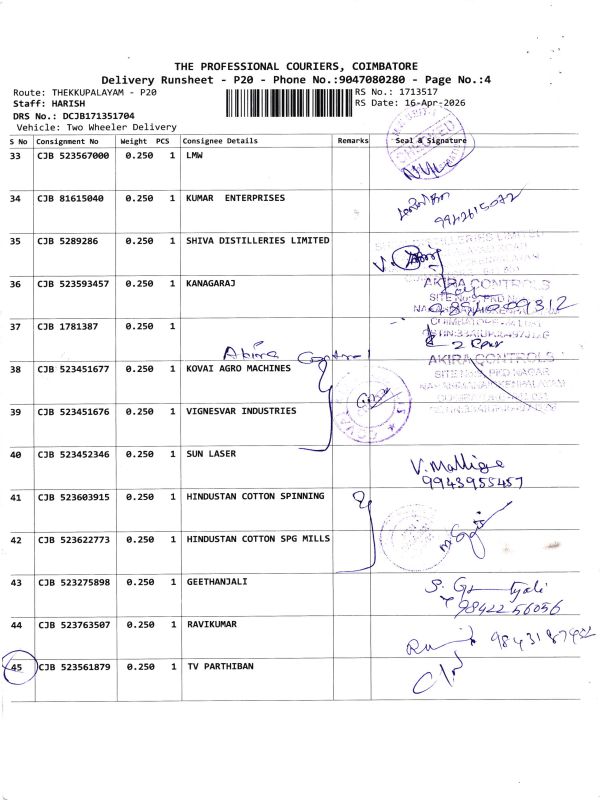 THE PROFESSIONAL COURIERS, COIMBATORE
Delivery Runsheet - P20 - Phone No.:9047080280 - Page No.:4
Route: THEKKUPALAYAM - P20 RS No.: 1713517
Staff: HARISH RS Date: 16-Apr-2026
DRS No.: DCJB171351704
Vehicle: Two Wheeler Delivery
S No Consignment No Weight PCS Consignee Details Remarks Seal & Signature
33 CJB 523567000 0.250 1 LMW
34 CJB 81615040 0.250 1 KUMAR ENTERPRISES
9942615072
35 CJB 5289286 0.250 1 SHIVA DISTILLERIES LIMITED
36 CJB 523593457 0.250 1 KANAGARAJ
AKIRA CONTROLS
37 CJB 1781387 0.250 1
Akira Control
AKIRA CONTROLS
38 CJB 523451677 0.250 1 KOVAI AGRO MACHINES
39 CJB 523451676 0.250 1 VIGNESVAR INDUSTRIES
40 CJB 523452346 0.250 1 SUN LASER
V. Mallige
9943955457
41 CJB 523603915 0.250 1 HINDUSTAN COTTON SPINNING
42 CJB 523622773 0.250 1 HINDUSTAN COTTON SPG MILLS
43 CJB 523275898 0.250 1 GEETHANJALI
9842256056
44 CJB 523763507 0.250 1 RAVIKUMAR
45 CJB 523561879 0.250 1 TV PARTHIBAN